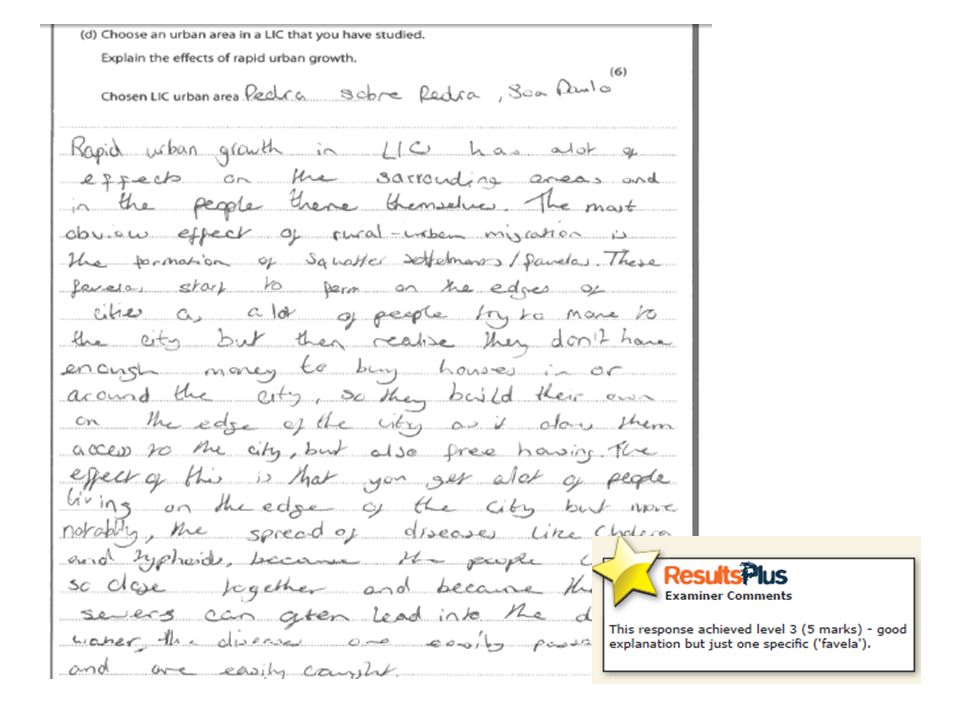 (d) Choose an urban area in a LIC that you have studied.
Explain the effects of rapid urban growth.
(6)
Chosen LIC urban area Pedra sobre Pedra, Soa Paulo
Rapid urban growth in LIC has alot of
effects on the sarrounding areas and
in the people theme themselves. The most
obviow effect of rural-urban migration is
the formation of squatter settelments/favelas. These
favelas start to form on the edges of
cities as a lot of people try to move to
the city but then realise they don't have
enough money to buy houses in or
around the city, so they build their own
on the edge of the city as it alows them
access to the city, but also free housing. The
effect of this is that you get alot of people
living on the edge of the city but more
notably, the spread of diseases like Cholera
and typhoids, because the people
so close together and because
sewers can often lead into the
water, the disease are easily
and are easily caught.
ResultsPlus
Examiner Comments
This response achieved level 3 (5 marks) - good
explanation but just one specific ('favela').